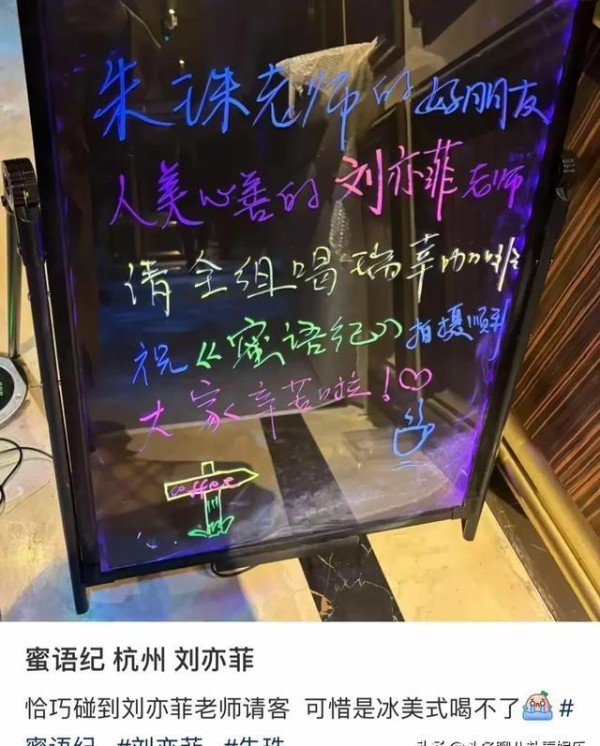 朱珠老师的好朋友
人美心善的刘亦菲老师
请全组喝瑞幸咖啡
祝《蜜语纪》拍摄顺利
大家辛苦啦！♡
coffee
蜜语纪 杭州 刘亦菲
恰巧碰到刘亦菲老师请客 可惜是冰美式喝不了 #
蜜语纪 #刘亦菲 #朱珠